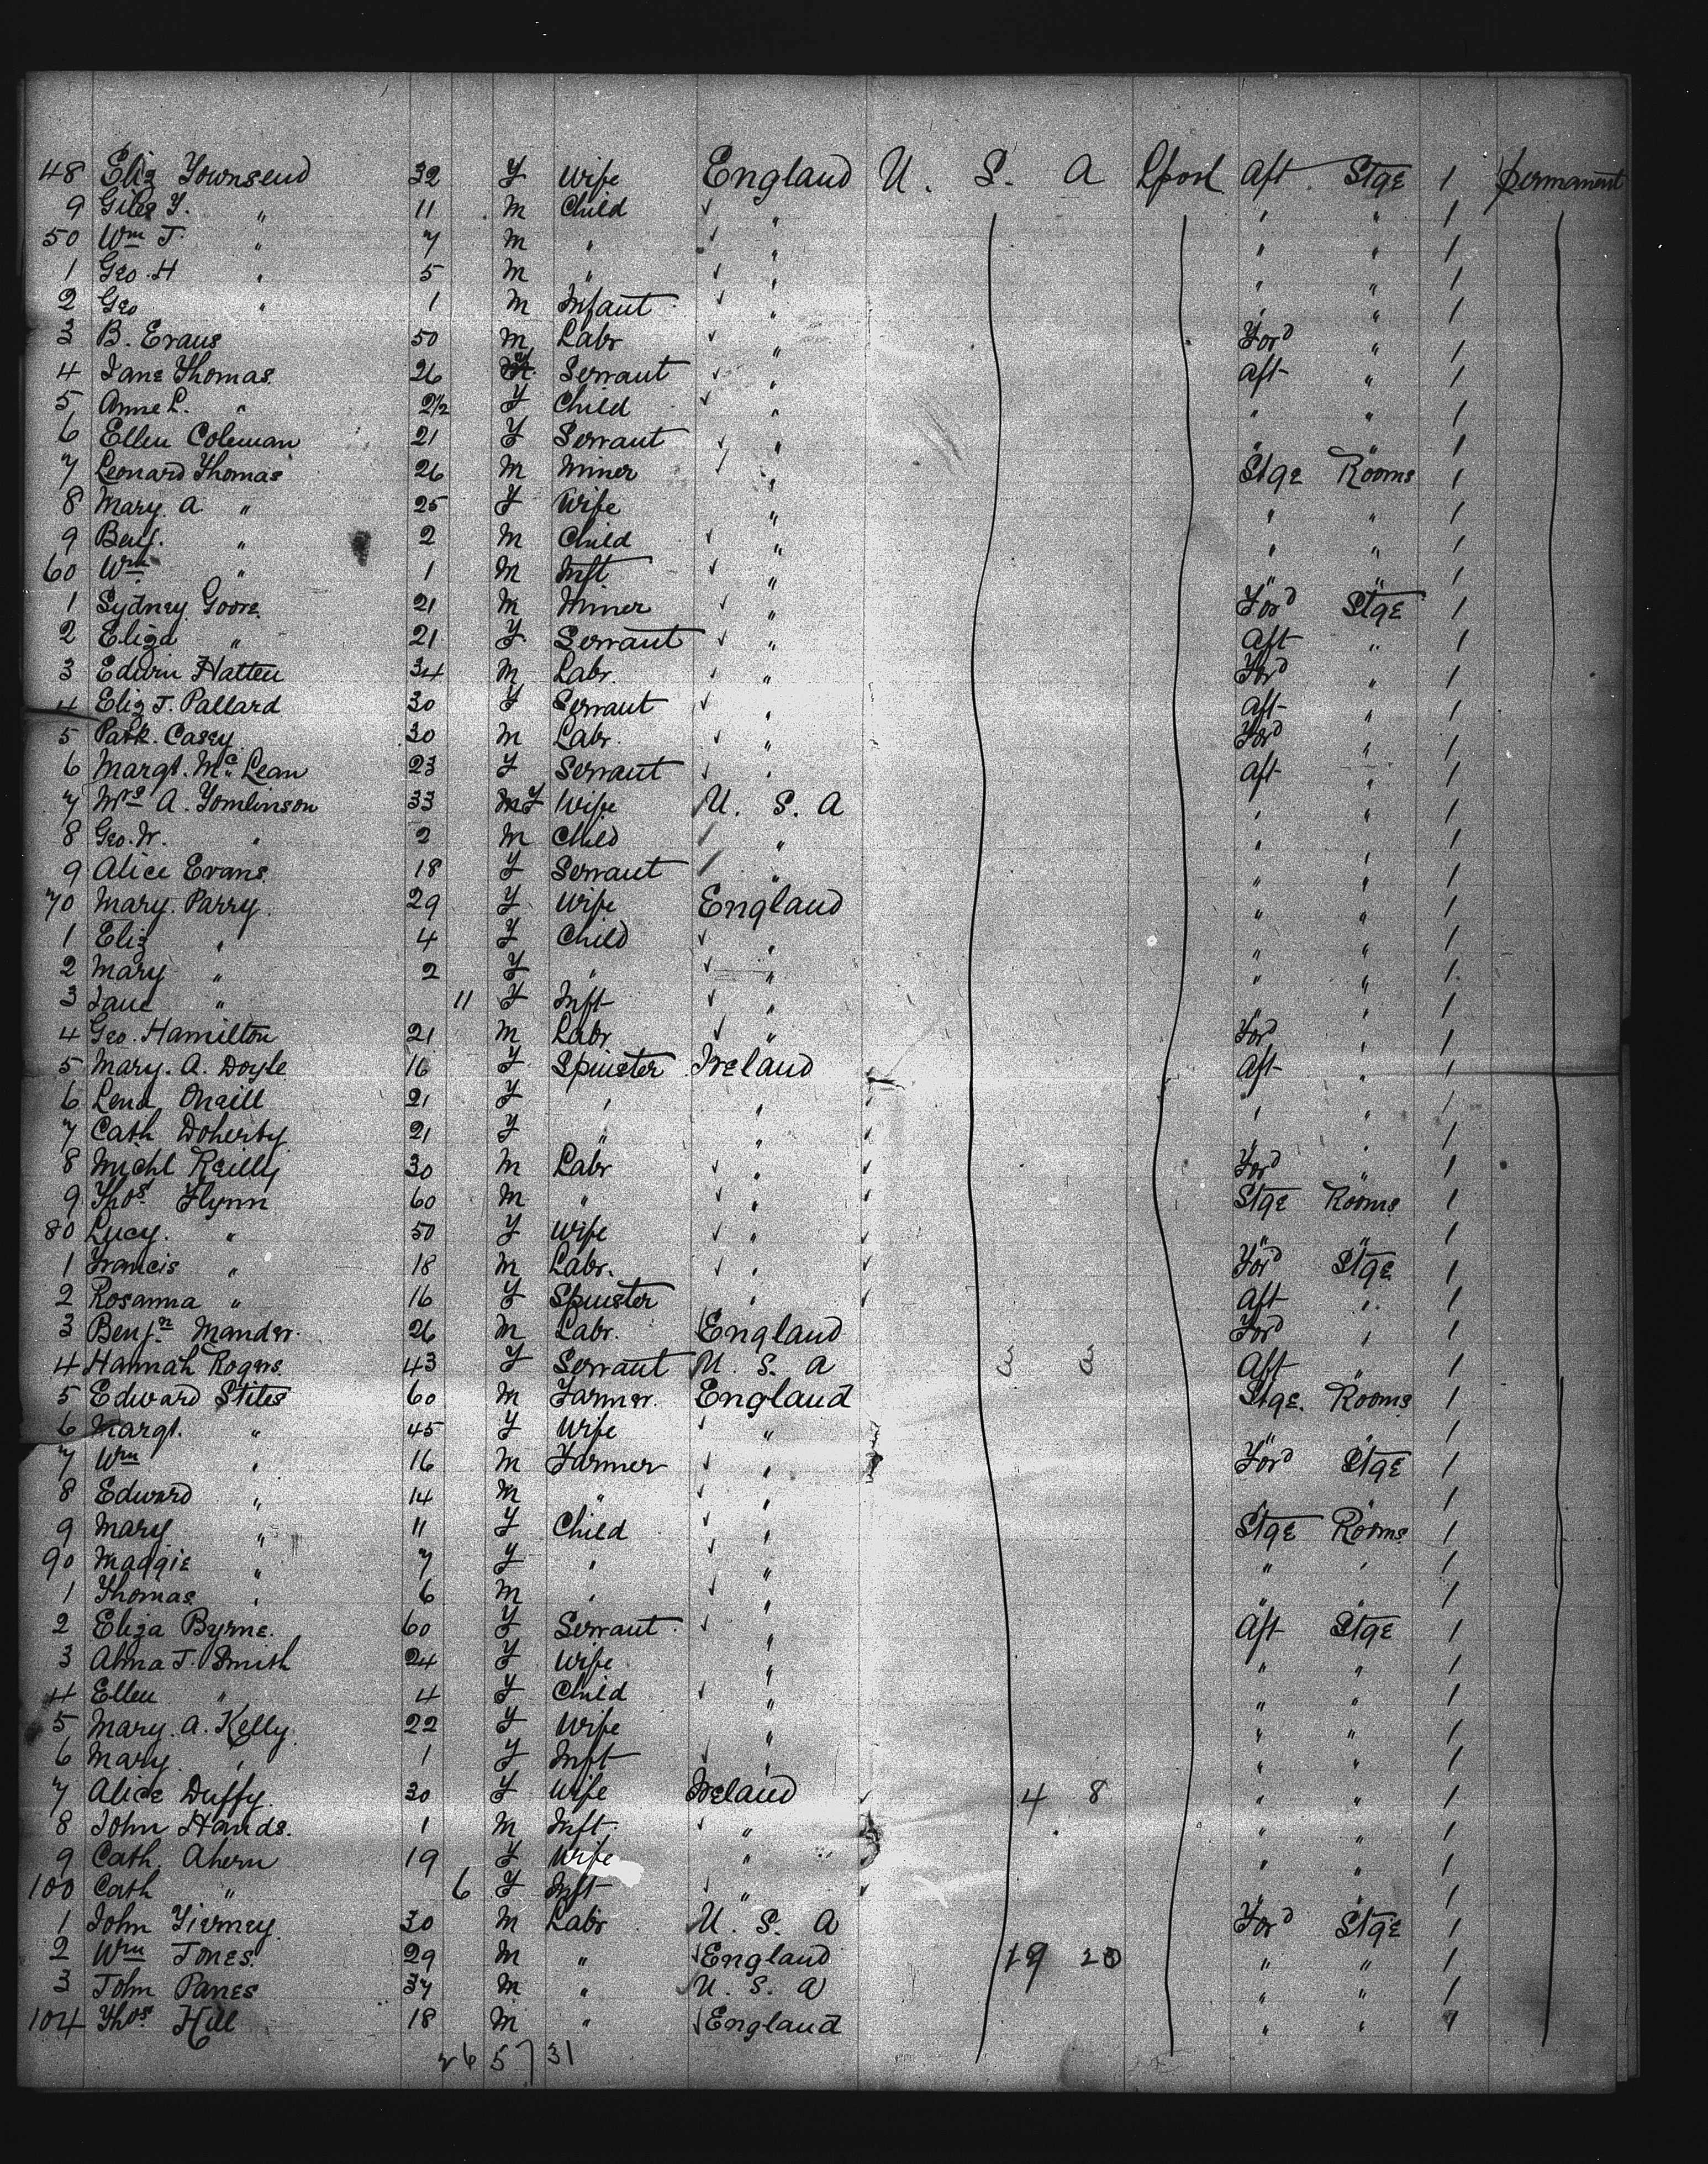 48 Eliz Townsend 32 F Wife England U. S. A Lpool Aft Stge 1 permanent
9 Giles T. " 11 M Child " " " 1
50 Wm J. " 7 M " " " " 1
1 Geo. H " 5 M " " " " 1
2 Geo " 1 M Infant " " " 1
3 B. Evans 50 M Labr " Ford " 1
4 Jane Thomas 26 F Servant " Aft " 1
5 Anne L. " 2½ F Child " " " 1
6 Ellen Coleman 21 F Servant " " " 1
7 Leonard Thomas 26 M Miner " Stge Rooms 1
8 Mary. A " 25 F Wife " " " 1
9 Benj. " 2 M Child " " " 1
60 Wm " 1 M Inft " " " 1
1 Sydney Goore 21 M Miner " Ford Stge 1
2 Eliza " 21 F Servant " Aft " 1
3 Edwin Hatten 34 M Labr. " Ford " 1
4 Eliz J. Pallard 30 F Servant " Aft " 1
5 Patk. Casey 30 M Labr. " Ford " 1
6 Margt. Mc Lean 23 F Servant " Aft " 1
7 Mrs A. Tomlinson 33 F Wife U. S. A " " 1
8 Geo. W. " 2 M Child " " " 1
9 Alice Evans 18 F Servant " " " 1
70 Mary. Parry 29 F Wife England " " 1
1 Eliz " 4 F Child " " " 1
2 Mary " 2 F " " " " 1
3 Jane " 11 F Inft " " " 1
4 Geo. Hamilton 21 M Labr " Ford " 1
5 Mary. A. Doyle 16 F Spinster Ireland Aft " 1
6 Lena Oneill 21 F " " " " 1
7 Cath Doherty 21 F " " " " 1
8 Michl Reilly 30 M Labr " Ford " 1
9 Thos Flynn 60 M " " Stge Rooms 1
80 Lucy. " 50 F Wife " " " 1
1 Francis " 18 M Labr. " Ford Stge 1
2 Rosanna " 16 F Spinster " Aft " 1
3 Benjn Mander 26 M Labr. England Ford " 1
4 Hannah Rogers 43 F Servant U. S. A Aft " 1
5 Edward Stites 60 M Farmer. England Stge. Rooms 1
6 Margt. " 45 F Wife " " " 1
7 Wm " 16 M Farmer " Ford Stge 1
8 Edward " 14 M " " " " 1
9 Mary " 11 F Child " Stge Rooms 1
90 Maggie " 7 F " " " " 1
1 Thomas " 6 M " " " " 1
2 Eliza Byrne. 60 F Servant " Aft Stge 1
3 Alma J. Smith 24 F Wife " " " 1
4 Ellen " 4 F Child " " " 1
5 Mary. A. Kelly 22 F Wife " " " 1
6 Mary " 1 F Inft " " " 1
7 Alice Duffy. 30 F Wife Ireland 4 8 " " 1
8 John Hands. 1 M Inft " " " 1
9 Cath. Ahern 19 F Wife " " " 1
100 Cath " 6 F Inft " " " 1
1 John Tierney 30 M Labr U. S. A Ford Stge 1
2 Wm Jones. 29 M " England 19 20 " " 1
3 John Panes 37 M " U. S. A " " 1
104 Thos Hill 18 M " England " " 1
26 57 31